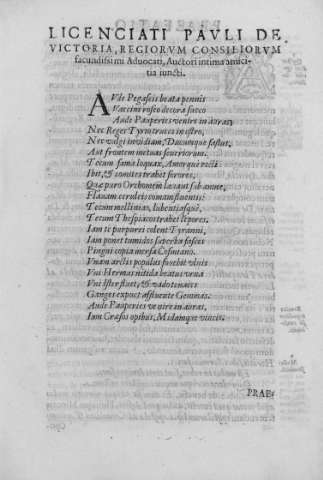 LICENCIATI PAVLI DE.
VICTORIA, REGIORVM CONSILIORVM
facundissimi Aduocati, Auctori intima amici-
tia iuncti.
AVde Pegaseis beata pennis
Vaccini roseo decora succo
Aude Pauperies venire in auras,
Nec Reges Tyrio truces in ostro,
Nec vulgi inuidiam, Ducumque fastus,
Aut frontem metuas seueriorum.
Tecum fama loquax, Amorque recti
Ibit, & comites trahet
Quae puro Orchomeni lauant sub amne,
Flauam ceruleis comam fluentis:
Tecum mellitias, iubentiasque,
Tecum Thespiacos trahet lepores.
Iam te purpurei colent Tyranni,
Iam ponet tumidos superba fasces
Pingui copia mersa
Vnam arctis populus fouebit vlnis
Vni Hermus nitida beatus vrna
Vni Ister fluet, & vadotenaces
Ganges expuet aestuante Gemmas.
Aude Pauperies venire in auras,
Iam Crasos opibus, Midamque vinces.
PRAE-